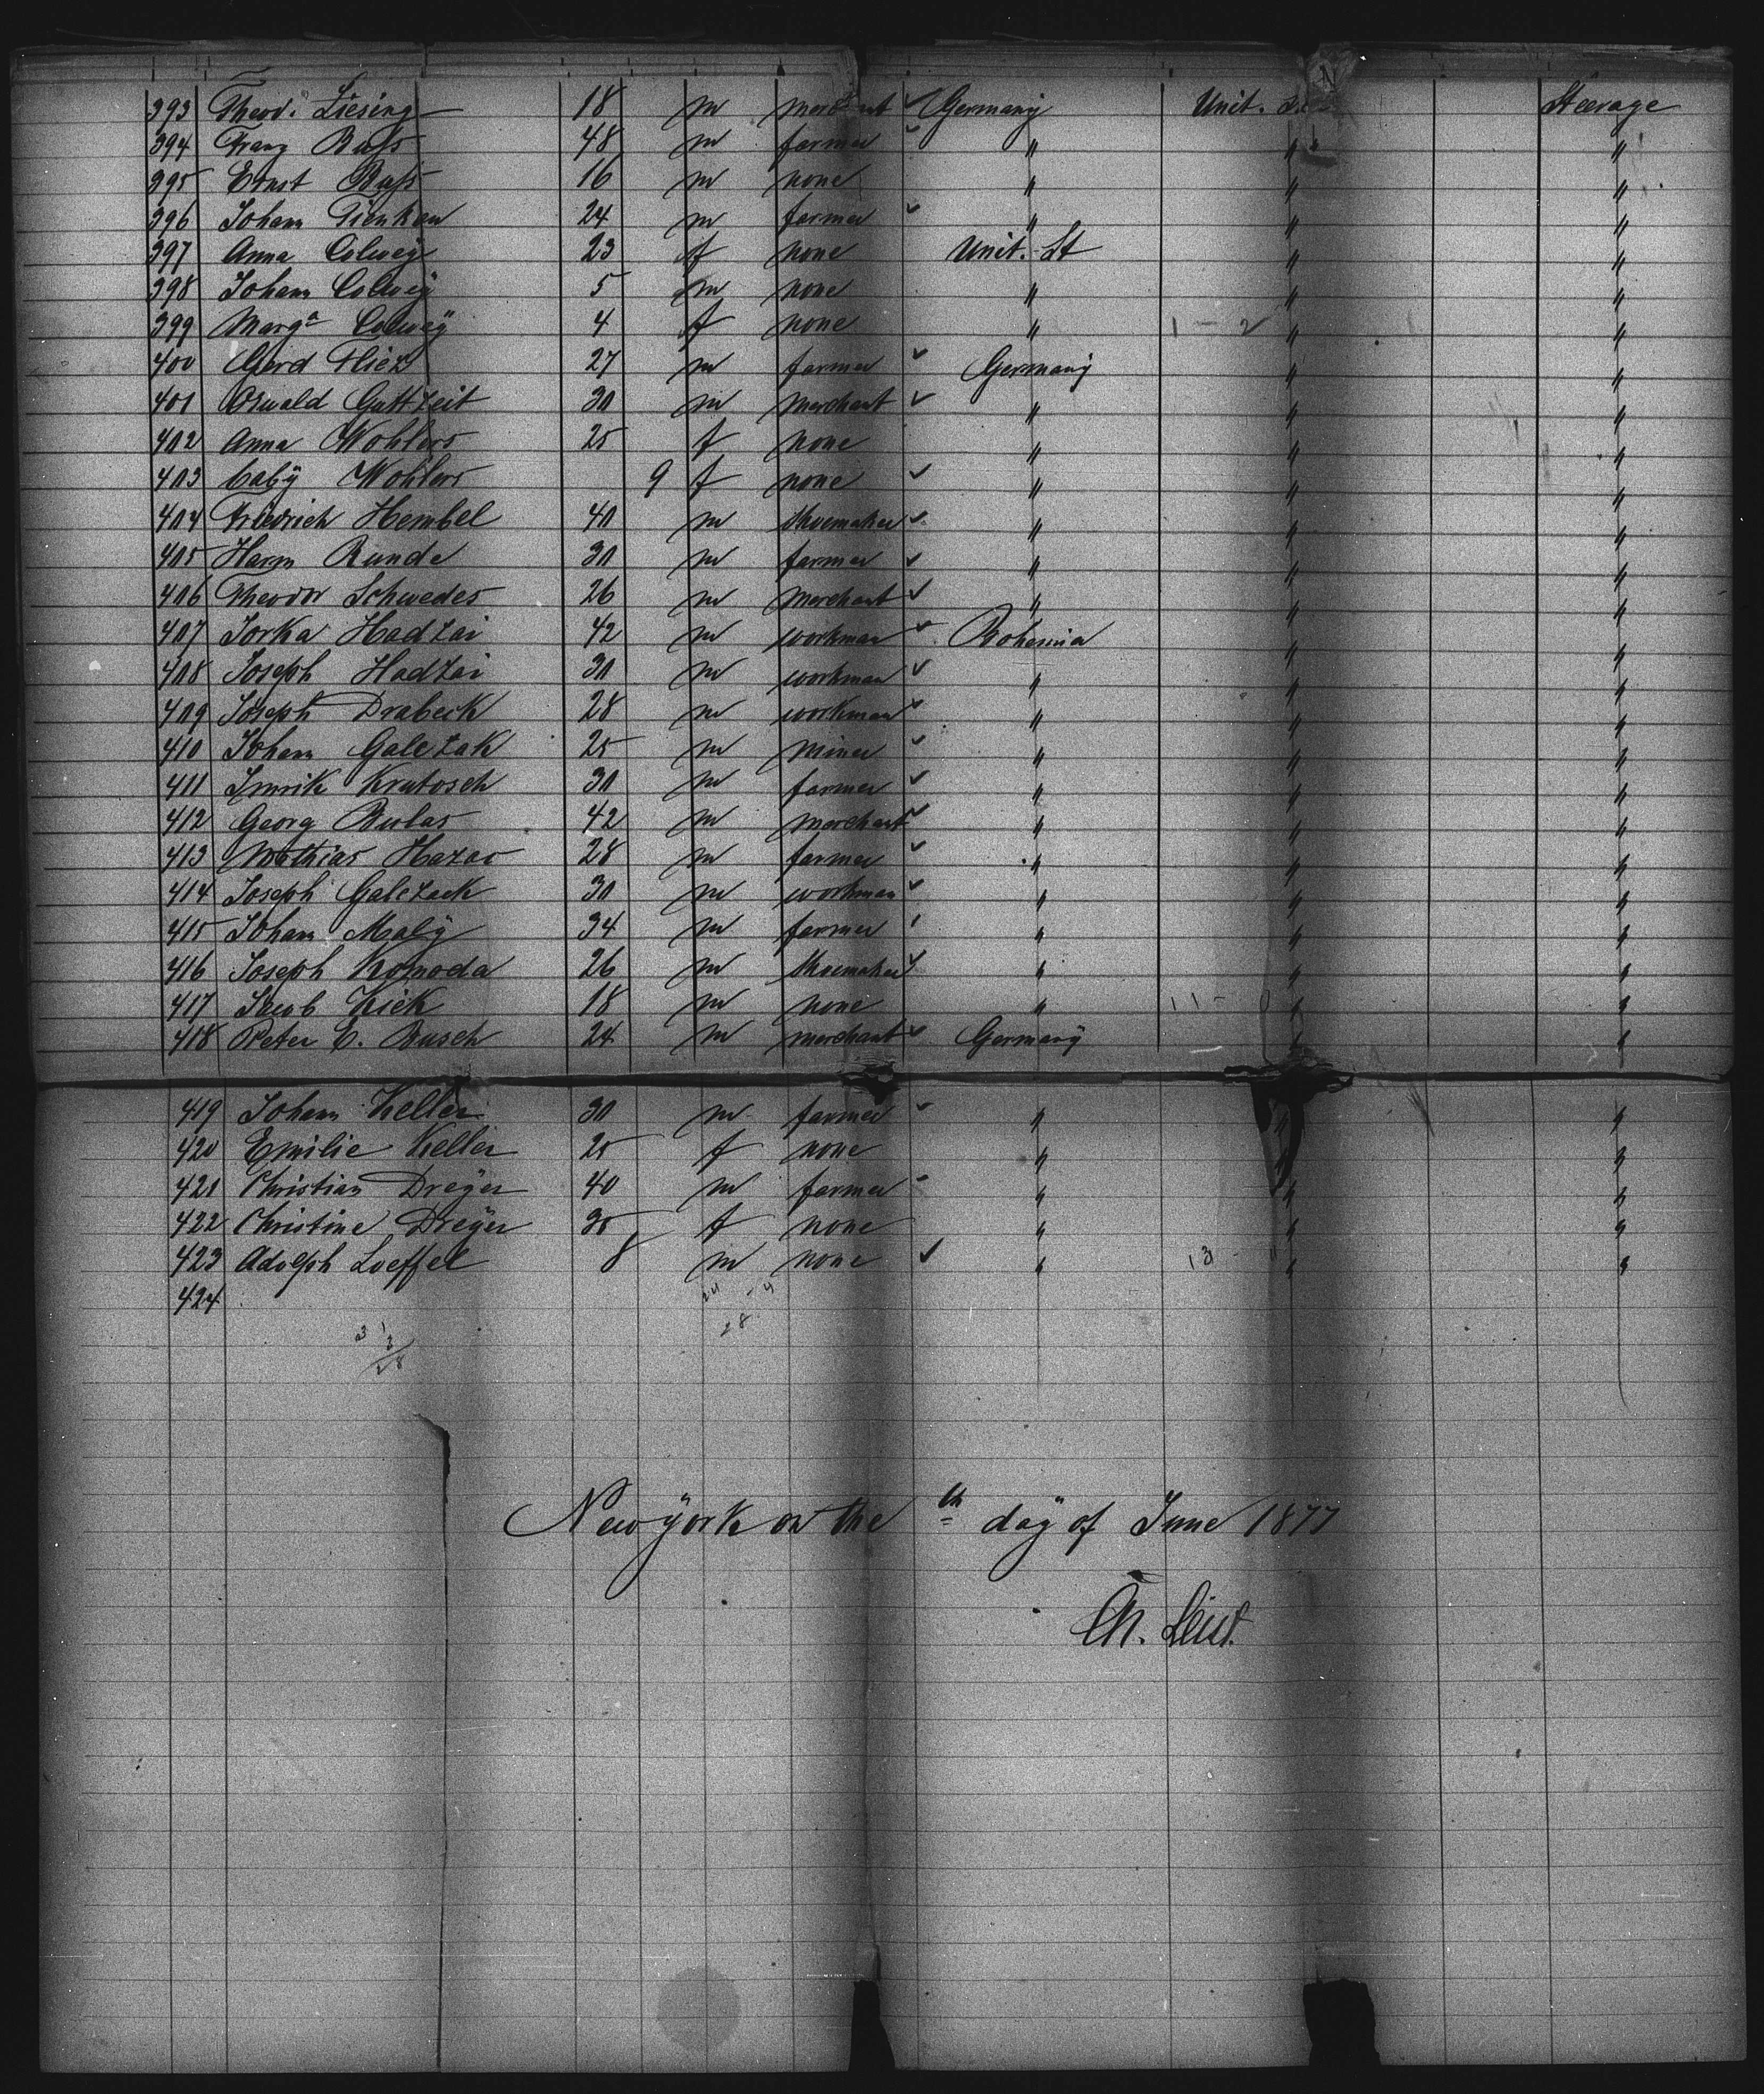 393 Theod. Liesing 18 m merchant ✓ Germany Unit. St. Steerage
394 Franz Buſs 48 m farmer ✓ " " "
395 Ernst Buſs 16 m none " " "
396 Johann Tienken 24 m farmer ✓ " " "
397 Anna Colwey 23 f none Unit. St " "
398 Johann Colwey 5 m none " " "
399 Marg.a Colweÿ 4 f none " 1 - 2 " "
400 Gerd 27 m farmer ✓ Germanÿ " "
401 Oswald Guttzeit 30 m merchant ✓ " " "
402 Anna Wohlers 25 f none " " "
403 babÿ Wohlers 9 f none ✓ " " "
404 Friedrich Hembel 40 m shoemaker ✓ " " "
405 Harm Runde 30 m farmer ✓ " " "
406 Theodor Schwedes 26 m merchant ✓ " " "
407 Jorka Hadzai 42 m workman ✓ Bohemia " "
408 Joseph Hadzai 30 m workman ✓ " " "
409 Joseph Drabeck 28 m workman ✓ " " "
410 Johann Galczak 25 m miner ✓ " " "
411 Imrik Krutosch 30 m farmer ✓ " " "
412 Georg Bulas 42 m merchant ✓ " " "
413 Mathias 28 m farmer ✓ " " "
414 Joseph Galczack 30 m workman ✓ " " "
415 Johann Malÿ 34 m farmer " " "
416 Joseph Komoda 26 m shoemaker ✓ " " "
417 Jacob Kick 18 m none " 11 - 0 " "
418 Peter C. Busch 24 m merchant ✓ Germanÿ " "
419 Johann Keller 30 m farmer ✓ " " "
420 Emilie Keller 25 f none " " "
421 Christian Dreÿer 40 m farmer " " "
422 Christine Dreÿer 35 f none " " "
423 Adolph Loeffel 8 m none ✓ " 13 - " "
424
24 - 4
28
Newÿork on the th daÿ of June 1877
Ch. Leist.